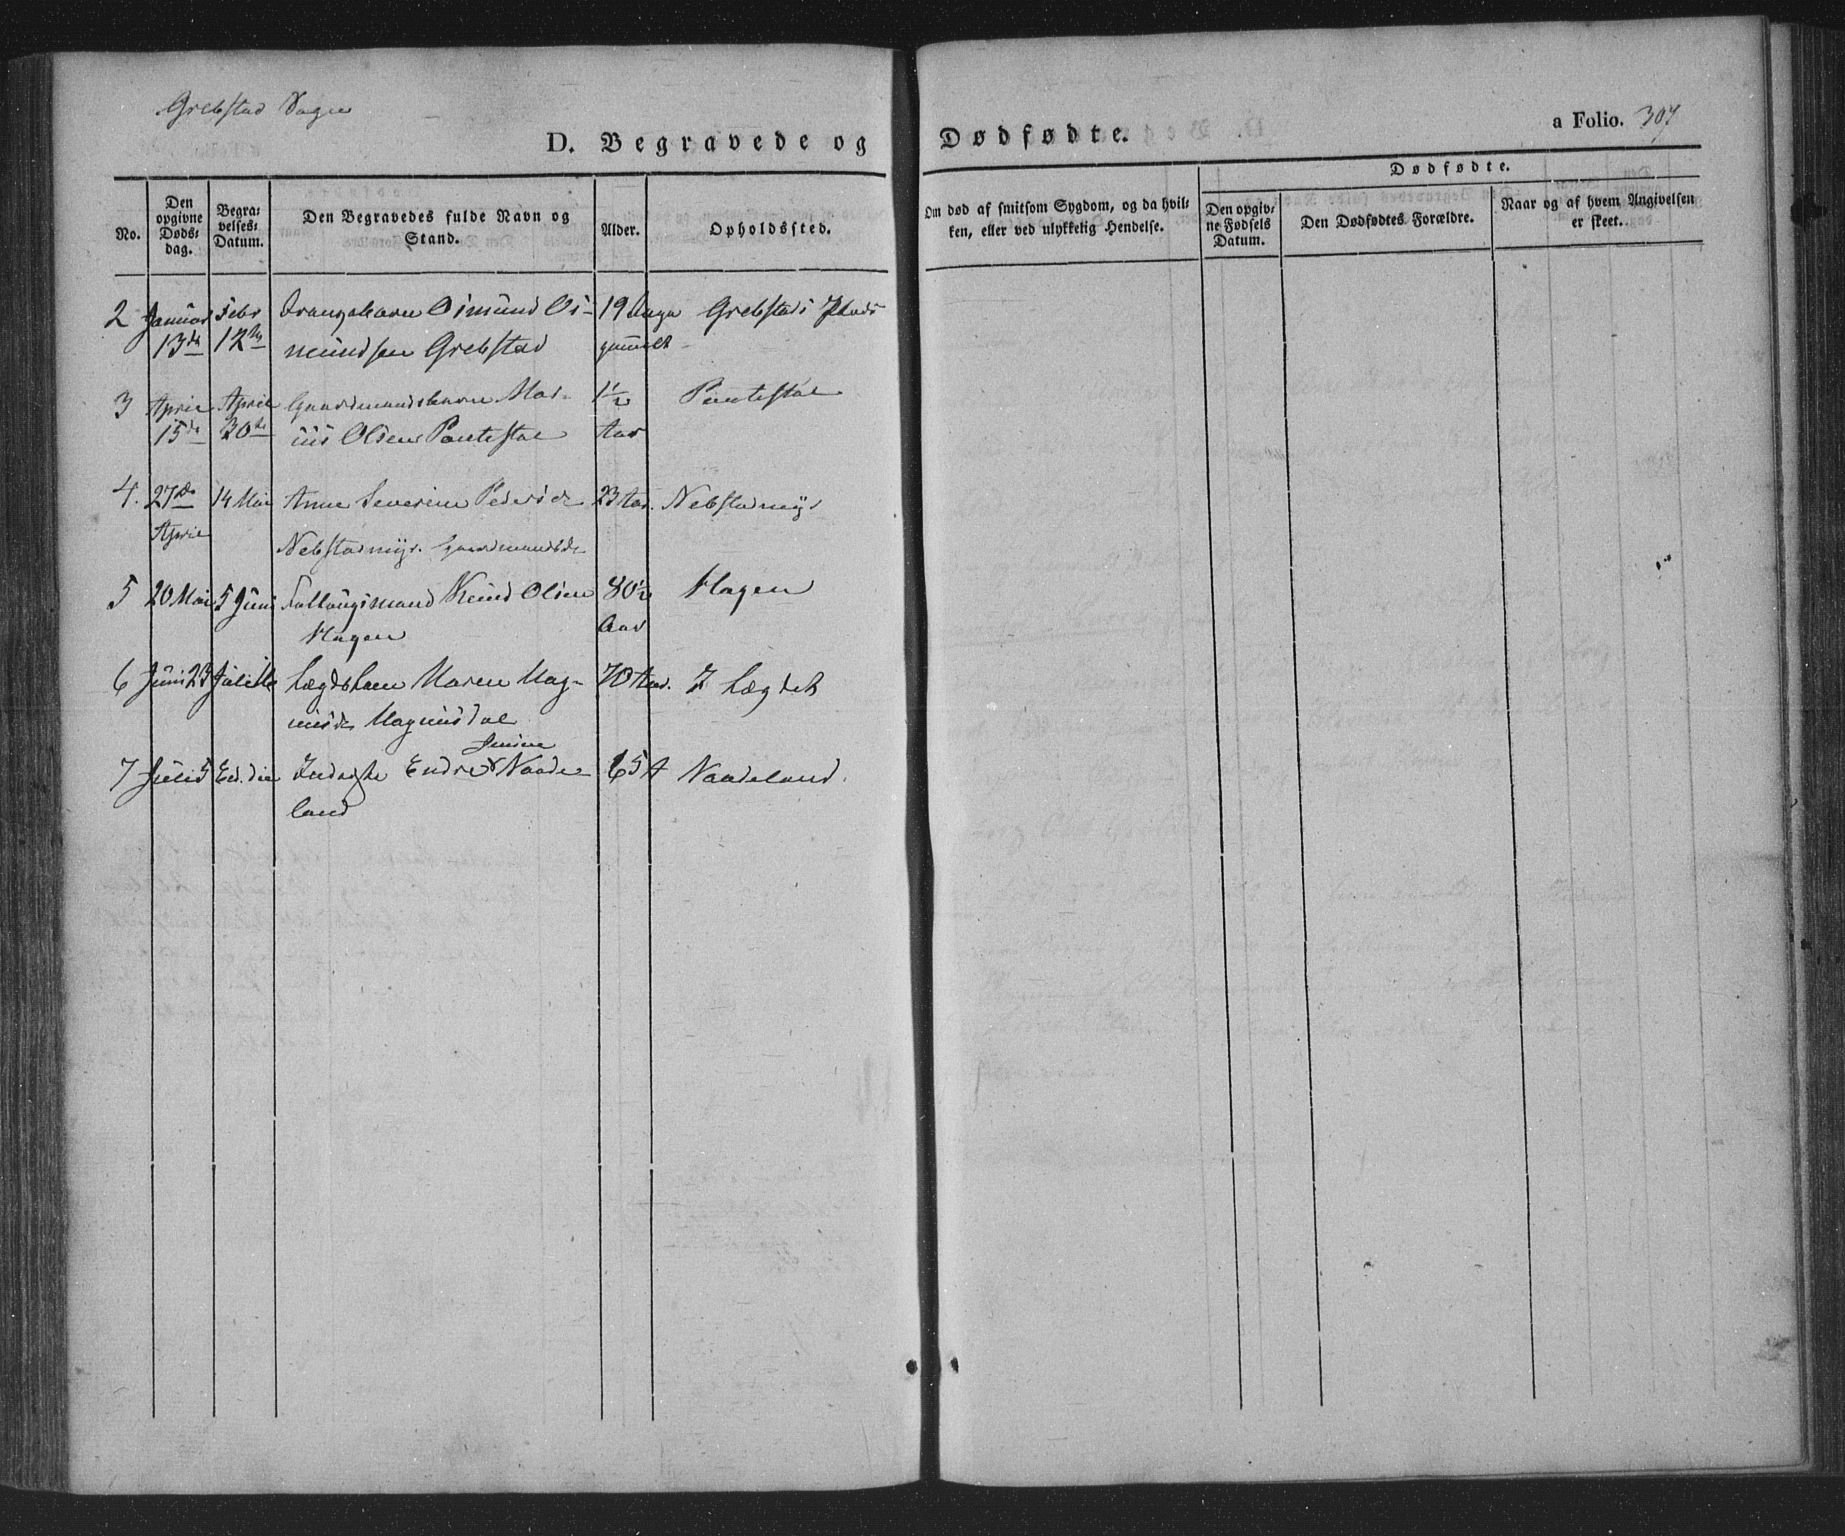 Grebstad Sogn
D. Begravede og Dødfødte.
a Folio. 307
Dødfødte.
No.
Den opgivne Døds- dag.
Begra- velses- Datum.
Den Begravedes fulde Navn og Stand.
Alder.
Opholdssted.
Om død af smitsom Sygdom, og da hvil- ken, eller ved ulykkelig Hendelse.
Den opgiv- ne Fødsels Datum.
Den Dødfødtes Forældre.
Naar og af hvem Angivelsen er skeet.
2 Januar Febr Osmund Os- 19 Dage Grebstads Plads
13de 12te mundsen Grebstad gammelt
3 April April Gaardmandsbarn Mar- 1½
15de 30te ius Olsen Aar
4. 27de 14 Mai Anne Severine Pedersd. 23 Aar. Nebstadmyr
April Nebstadmyr. Gaardmandsd.
5 20 Mai 5 Juni Knud Olsen 80½ Hagen
Hagen Aar
6 Juni 23 Juli Lægdslem Maren Mag- 70 Aar. I Lægdet
nusd. Magnusdal
Jensine
7 Juli 5 Inderste Endre Naade- 65 A Naadeland.
land